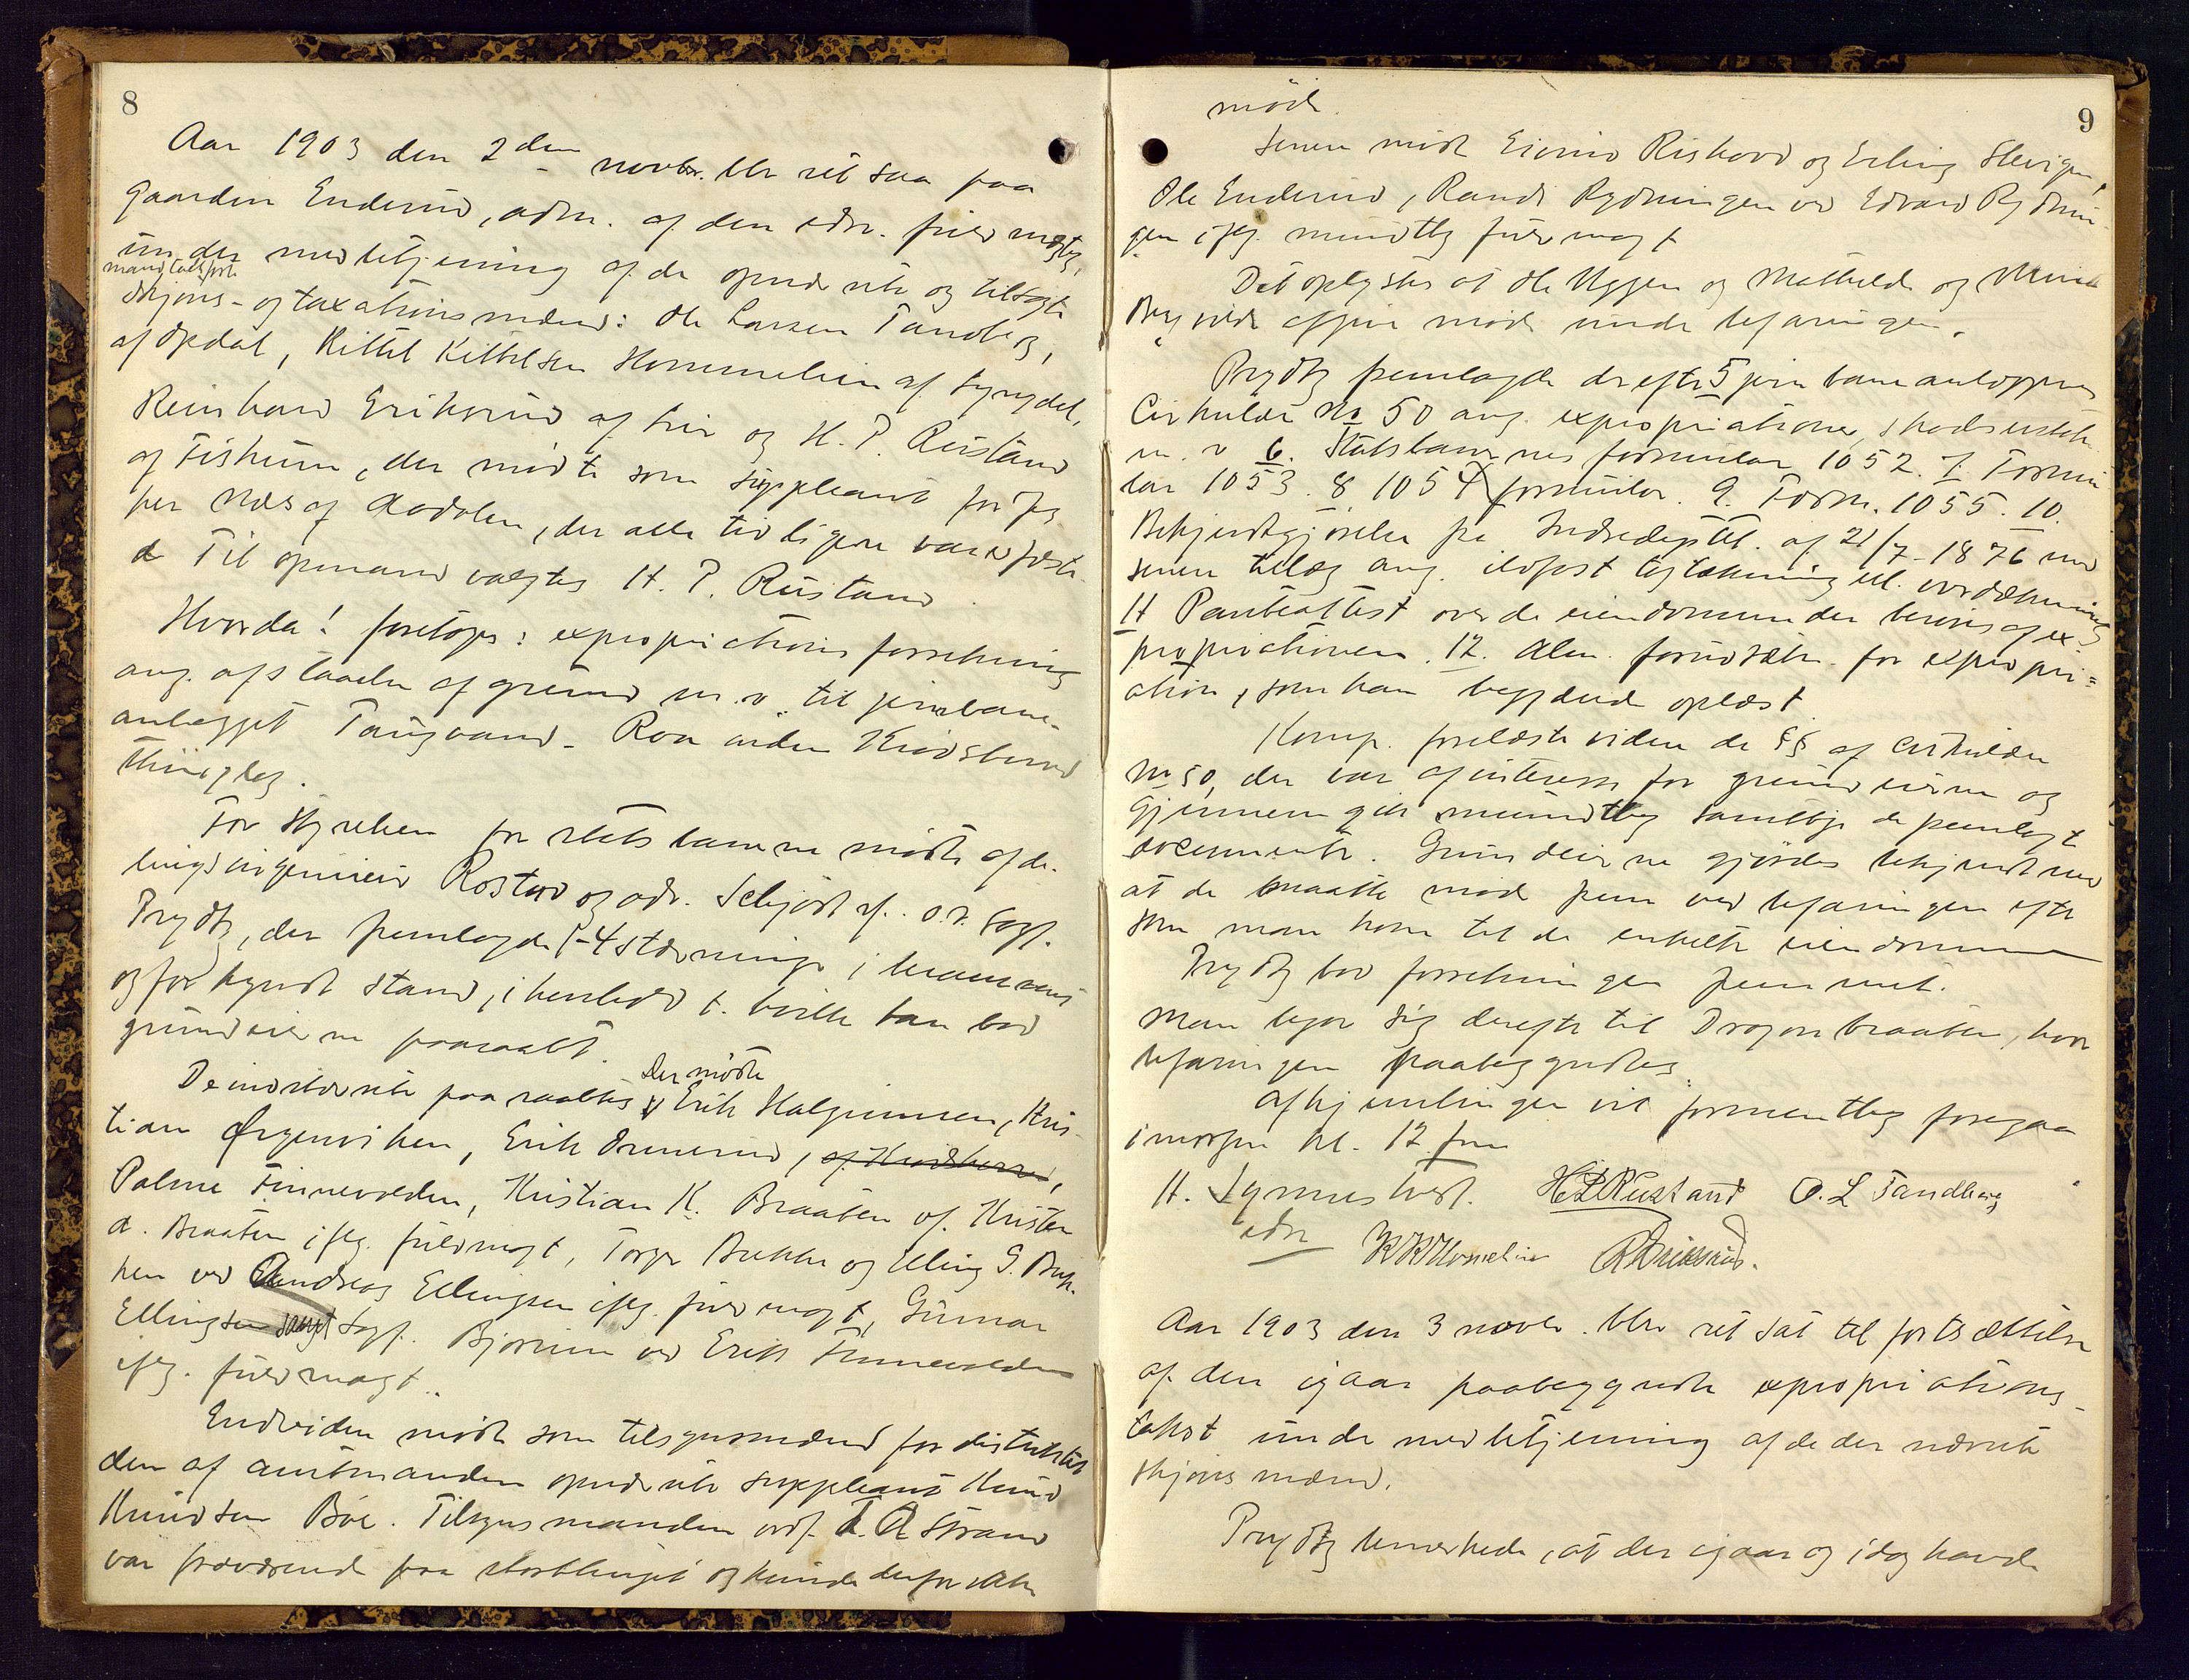 8
Aar 1903 den 2den novbr. blev ret sat paa
gaarden Enderud, adm. af den edsv. fuldmægtig,
under medbetjening af de opnævnte og tilsagte
mandtalsførte
skjøns- og taxationsmænd: Ole Larsen Tandberg,
af Opdal, Kittel Kittelsen Hommelien af Sigdal,
Reinhard Eriksrud af Lier og H. P. Rustand
af Fiskum, der mødte som suppleant for
per Næs af Aadalen, der alle tidligere var edfæste-
de Til opmand valgtes H. P. Rustand.
Hvorda! foretoges: expropriations forretning
ang. afstaaelse af grund m. v. til jernbane-
anlægget Tangvand - Roa inden Krødsherred
thinglag.
For styrelsen for statsbanerne mødte afde-
lingsingeniør Rostad og adv. Schjødt v. o.r. sagf.
Prydtz, der fremlagde 1-4 stævninge i
og forkyndt stand, i henhold t. hvilke han bad
grundeierne paaraabt.
De indstævnte paaraabtes Der mødte Erik Halgrimsen, Kris-
tian Ørgenviken, Erik Drunerud, af Krødsherred,
Palme Finnevolden, Kristian K. Braaten v. Kristen
A. Braaten ifg. fuldmagt, Torger Brekke og Elling G. Brek-
ken ved Andreas Ellingsen ifg. fuldmagt, Gunnar
Ellingsen samt Sagf. Bjørnum ved Erik Finnevolden
ifg. fuldmagt.
Endvidere mødte som tilsynsmænd for distriktet
den af amtmanden opnævnte suppleant Knud
Knudsen Bøe. Tilsynsmanden ordf. T. A Strand
var fraværende paa storthinget og kunde derfor ikke
9
møde.
Senere mødte Eivind Riskovd og Erling Slevigen,
Ole Enderud, Randi Rydningen ved Edvard Rydnin-
gen ifg. mundtlig fuldmagt
Det oplystes at Ole Uggen og Mathilde og
vilde afgive møde under befaringen.
Prydtz fremlagde derefter 5 jernbaneanlæggenes
Cirkulær No 50 ang. expropriationer, skadserstatn.
m. v 6. Statsbanernes formular 1052. 7 Formu-
lar 1053. 8. 1054 formular. 9. Form. 1055. 10.
Bekjendtgjørelse fra Indredeptet. af 21/7-1876 med
senere tillæg ang. ildfast tagtækning el. vordækning
11 Panteattest over de eiendomme der berøres af ex-
propriationen. 12. Alm. forudsætn. for expropri=
ation, som han begjærede oplæst.
Komp. forelæste videre de §§ af Cirkulær
No 50, der var af interesse for grundeierne og
gjennemgik mundtlig samtlige de fremlagte
documenter. Grundeierne gjordes bekjendt med
at de maatte møde frem ved befaringen efter
som man kom til de enkelte eiendomme
Prydtz bad forretningen fremmet.
Man begav sig derefter til Dragonbraaten, hvor
befaringen paabegyndtes.
Afhjemlingen vil formentlig foregaa
imorgen kl. 12 fm
H. Lynnestvedt. H P Rustand O. L Tandberg
edsv K K Homelien R Eriksrud.
Aar 1903 den 3 novbr. blev ret sat til fortsættelse
af den igaar paabegyndte expropriations-
takst under medbetjening af de der nævnte
skjønsmænd.
Prydtz bemærkede, at der igaar og idag havde